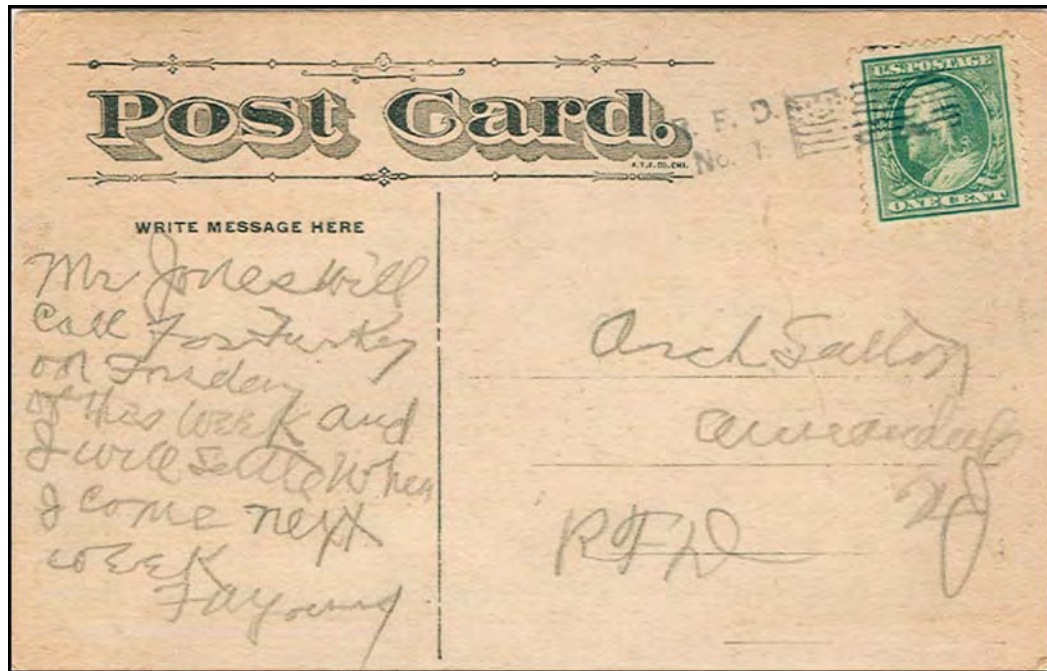 Post Card.
A.T.F. CO. CHI.
R. F. D.
No. 1.
U.S. POSTAGE
ONE CENT
WRITE MESSAGE HERE
Mr Jones will
Call For Turkey
on Friday
of this week and
I will Settle When
I come next
week
F A Young
Arch
Annandale
NJ
RFD